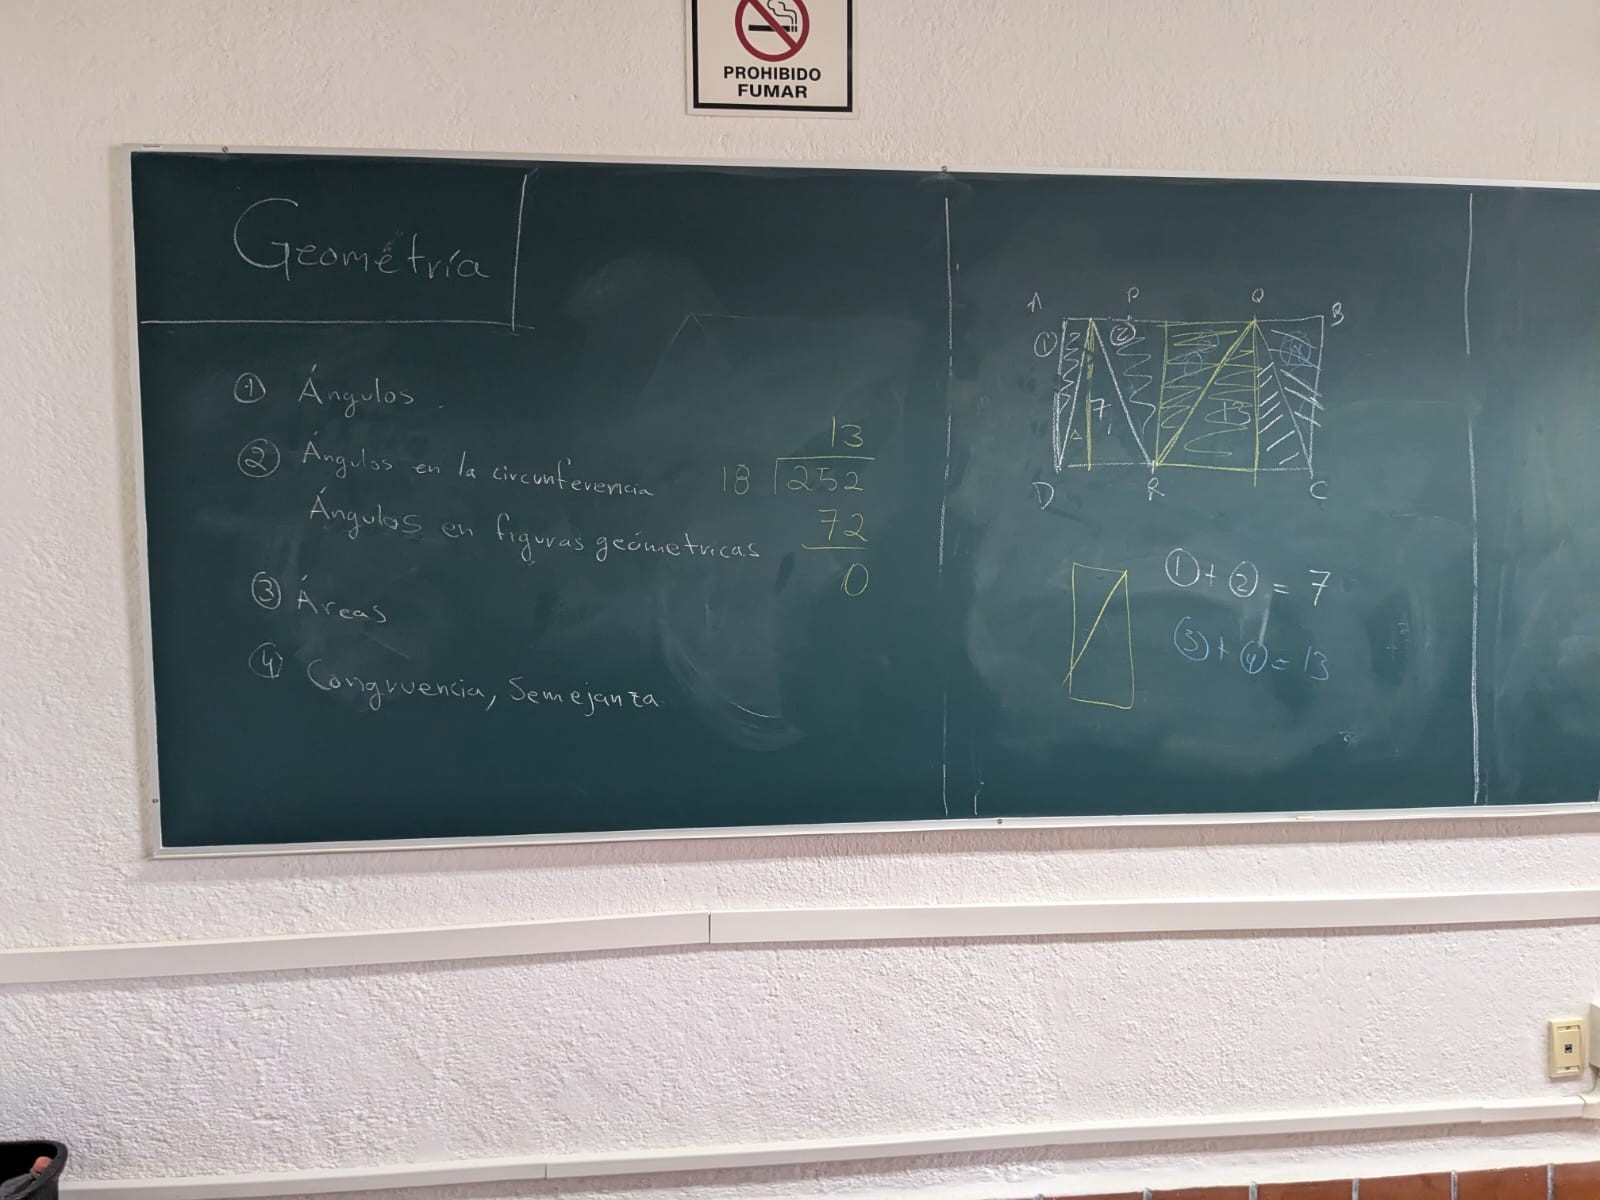 PROHIBIDO
FUMAR
Geométría
① Ángulos
② Ángulos en la circunferencia
Ángulos en figuras geómetricas
③ Áreas
④ Congruencia, Semejanza
13
18 252
72
0
A P Q B
① ②
7 13
D R C
① + ② = 7
③ + ④ = 13